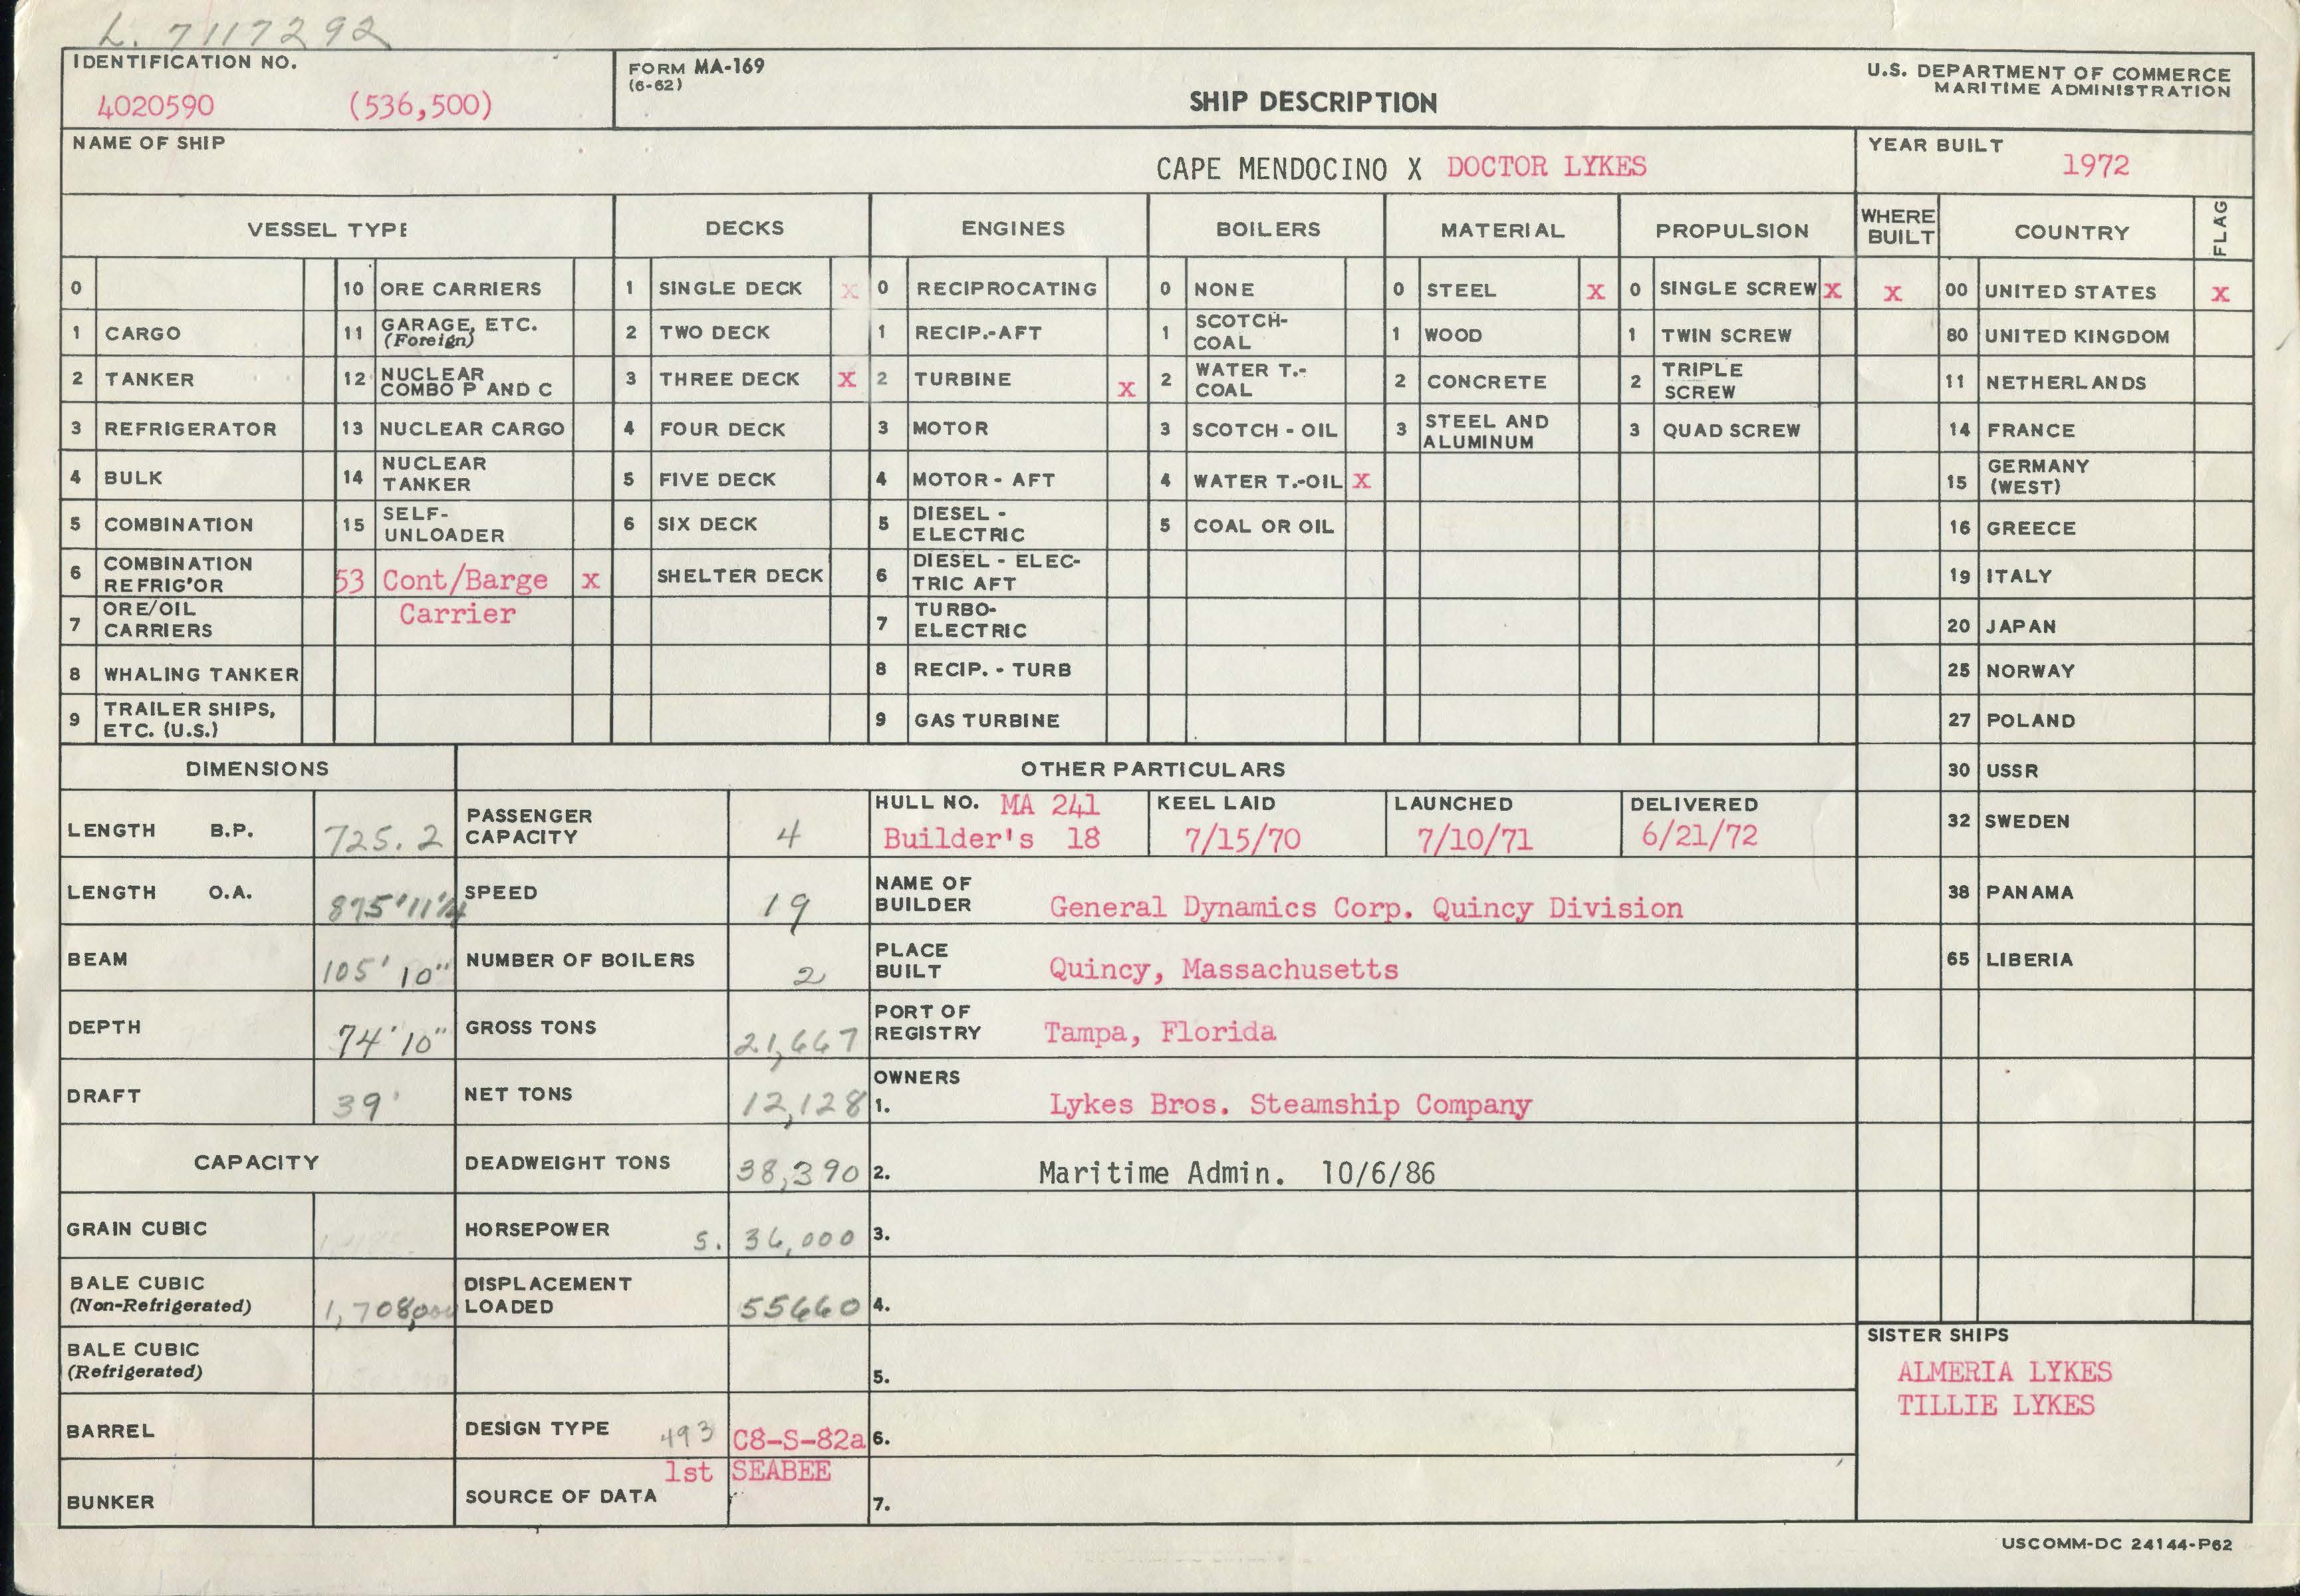 L. 7117292
IDENTIFICATION NO.
4020590 (536,500)
FORM MA-169
(6-62)
SHIP DESCRIPTION
U.S. DEPARTMENT OF COMMERCE
MARITIME ADMINISTRATION
NAME OF SHIP
CAPE MENDOCINO X DOCTOR LYKES
YEAR BUILT
1972
VESSEL TYPE DECKS ENGINES BOILERS MATERIAL PROPULSION WHERE BUILT COUNTRY FLAG
0 10 ORE CARRIERS 1 SINGLE DECK X 0 RECIPROCATING 0 NONE 0 STEEL X 0 SINGLE SCREW X X 00 UNITED STATES X
1 CARGO 11 GARAGE, ETC. (Foreign) 2 TWO DECK 1 RECIP.-AFT 1 SCOTCH-COAL 1 WOOD 1 TWIN SCREW 80 UNITED KINGDOM
2 TANKER 12 NUCLEAR COMBO P AND C 3 THREE DECK X 2 TURBINE X 2 WATER T.-COAL 2 CONCRETE 2 TRIPLE SCREW 11 NETHERLANDS
3 REFRIGERATOR 13 NUCLEAR CARGO 4 FOUR DECK 3 MOTOR 3 SCOTCH - OIL 3 STEEL AND ALUMINUM 3 QUAD SCREW 14 FRANCE
4 BULK 14 NUCLEAR TANKER 5 FIVE DECK 4 MOTOR - AFT 4 WATER T.-OIL X 15 GERMANY (WEST)
5 COMBINATION 15 SELF-UNLOADER 6 SIX DECK 5 DIESEL - ELECTRIC 5 COAL OR OIL 16 GREECE
6 COMBINATION REFRIG'OR 53 Cont/Barge x SHELTER DECK 6 DIESEL - ELEC-TRIC AFT 19 ITALY
7 ORE/OIL CARRIERS Carrier 7 TURBO-ELECTRIC 20 JAPAN
8 WHALING TANKER 8 RECIP. - TURB 25 NORWAY
9 TRAILER SHIPS, ETC. (U.S.) 9 GAS TURBINE 27 POLAND
DIMENSIONS OTHER PARTICULARS 30 USSR
LENGTH B.P. 725.2 PASSENGER CAPACITY 4 HULL NO. MA 241 Builder's 18 KEEL LAID 7/15/70 LAUNCHED 7/10/71 DELIVERED 6/21/72 32 SWEDEN
LENGTH O.A. 875'11 1/4 SPEED 19 NAME OF BUILDER General Dynamics Corp. Quincy Division 38 PANAMA
BEAM 105' 10" NUMBER OF BOILERS 2 PLACE BUILT Quincy, Massachusetts 65 LIBERIA
DEPTH 74' 10" GROSS TONS 21,667 PORT OF REGISTRY Tampa, Florida
DRAFT 39' NET TONS 12,128 OWNERS 1. Lykes Bros. Steamship Company
CAPACITY DEADWEIGHT TONS 38,390 2. Maritime Admin. 10/6/86
GRAIN CUBIC HORSEPOWER S. 36,000 3.
BALE CUBIC (Non-Refrigerated) 1,708,000 DISPLACEMENT LOADED 55660 4.
BALE CUBIC (Refrigerated) 5.
BARREL DESIGN TYPE 493 C8-S-82a 6.
1st SEABEE
BUNKER SOURCE OF DATA 7.
SISTER SHIPS
ALMERIA LYKES
TILLIE LYKES
USCOMM-DC 24144-P62